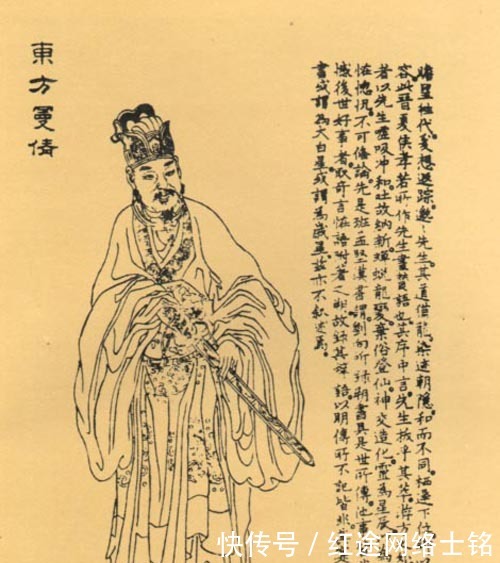 東方曼倩
瞻望往代爰想遐踪邈々先生其道猶龍染迹朝隱和而不同栖遲下位
容此晉夏侯孝若所作先生畫贊語也其序中言先生拔乎其萃游方
者以先生噓吸冲和吐故納新蟬蛻龍變棄俗登仙神交造化靈為星辰
怪惚恍不可備論先是班孟堅漢書謂劉向所錄朔書具是世所傳他事
憾後世好事者取奇言怪語附著之朔故錄其辭語以明傳所不記皆非
書或謂為太白星或謂為歲星茲亦不敘述焉
快传号/红途网络士铭